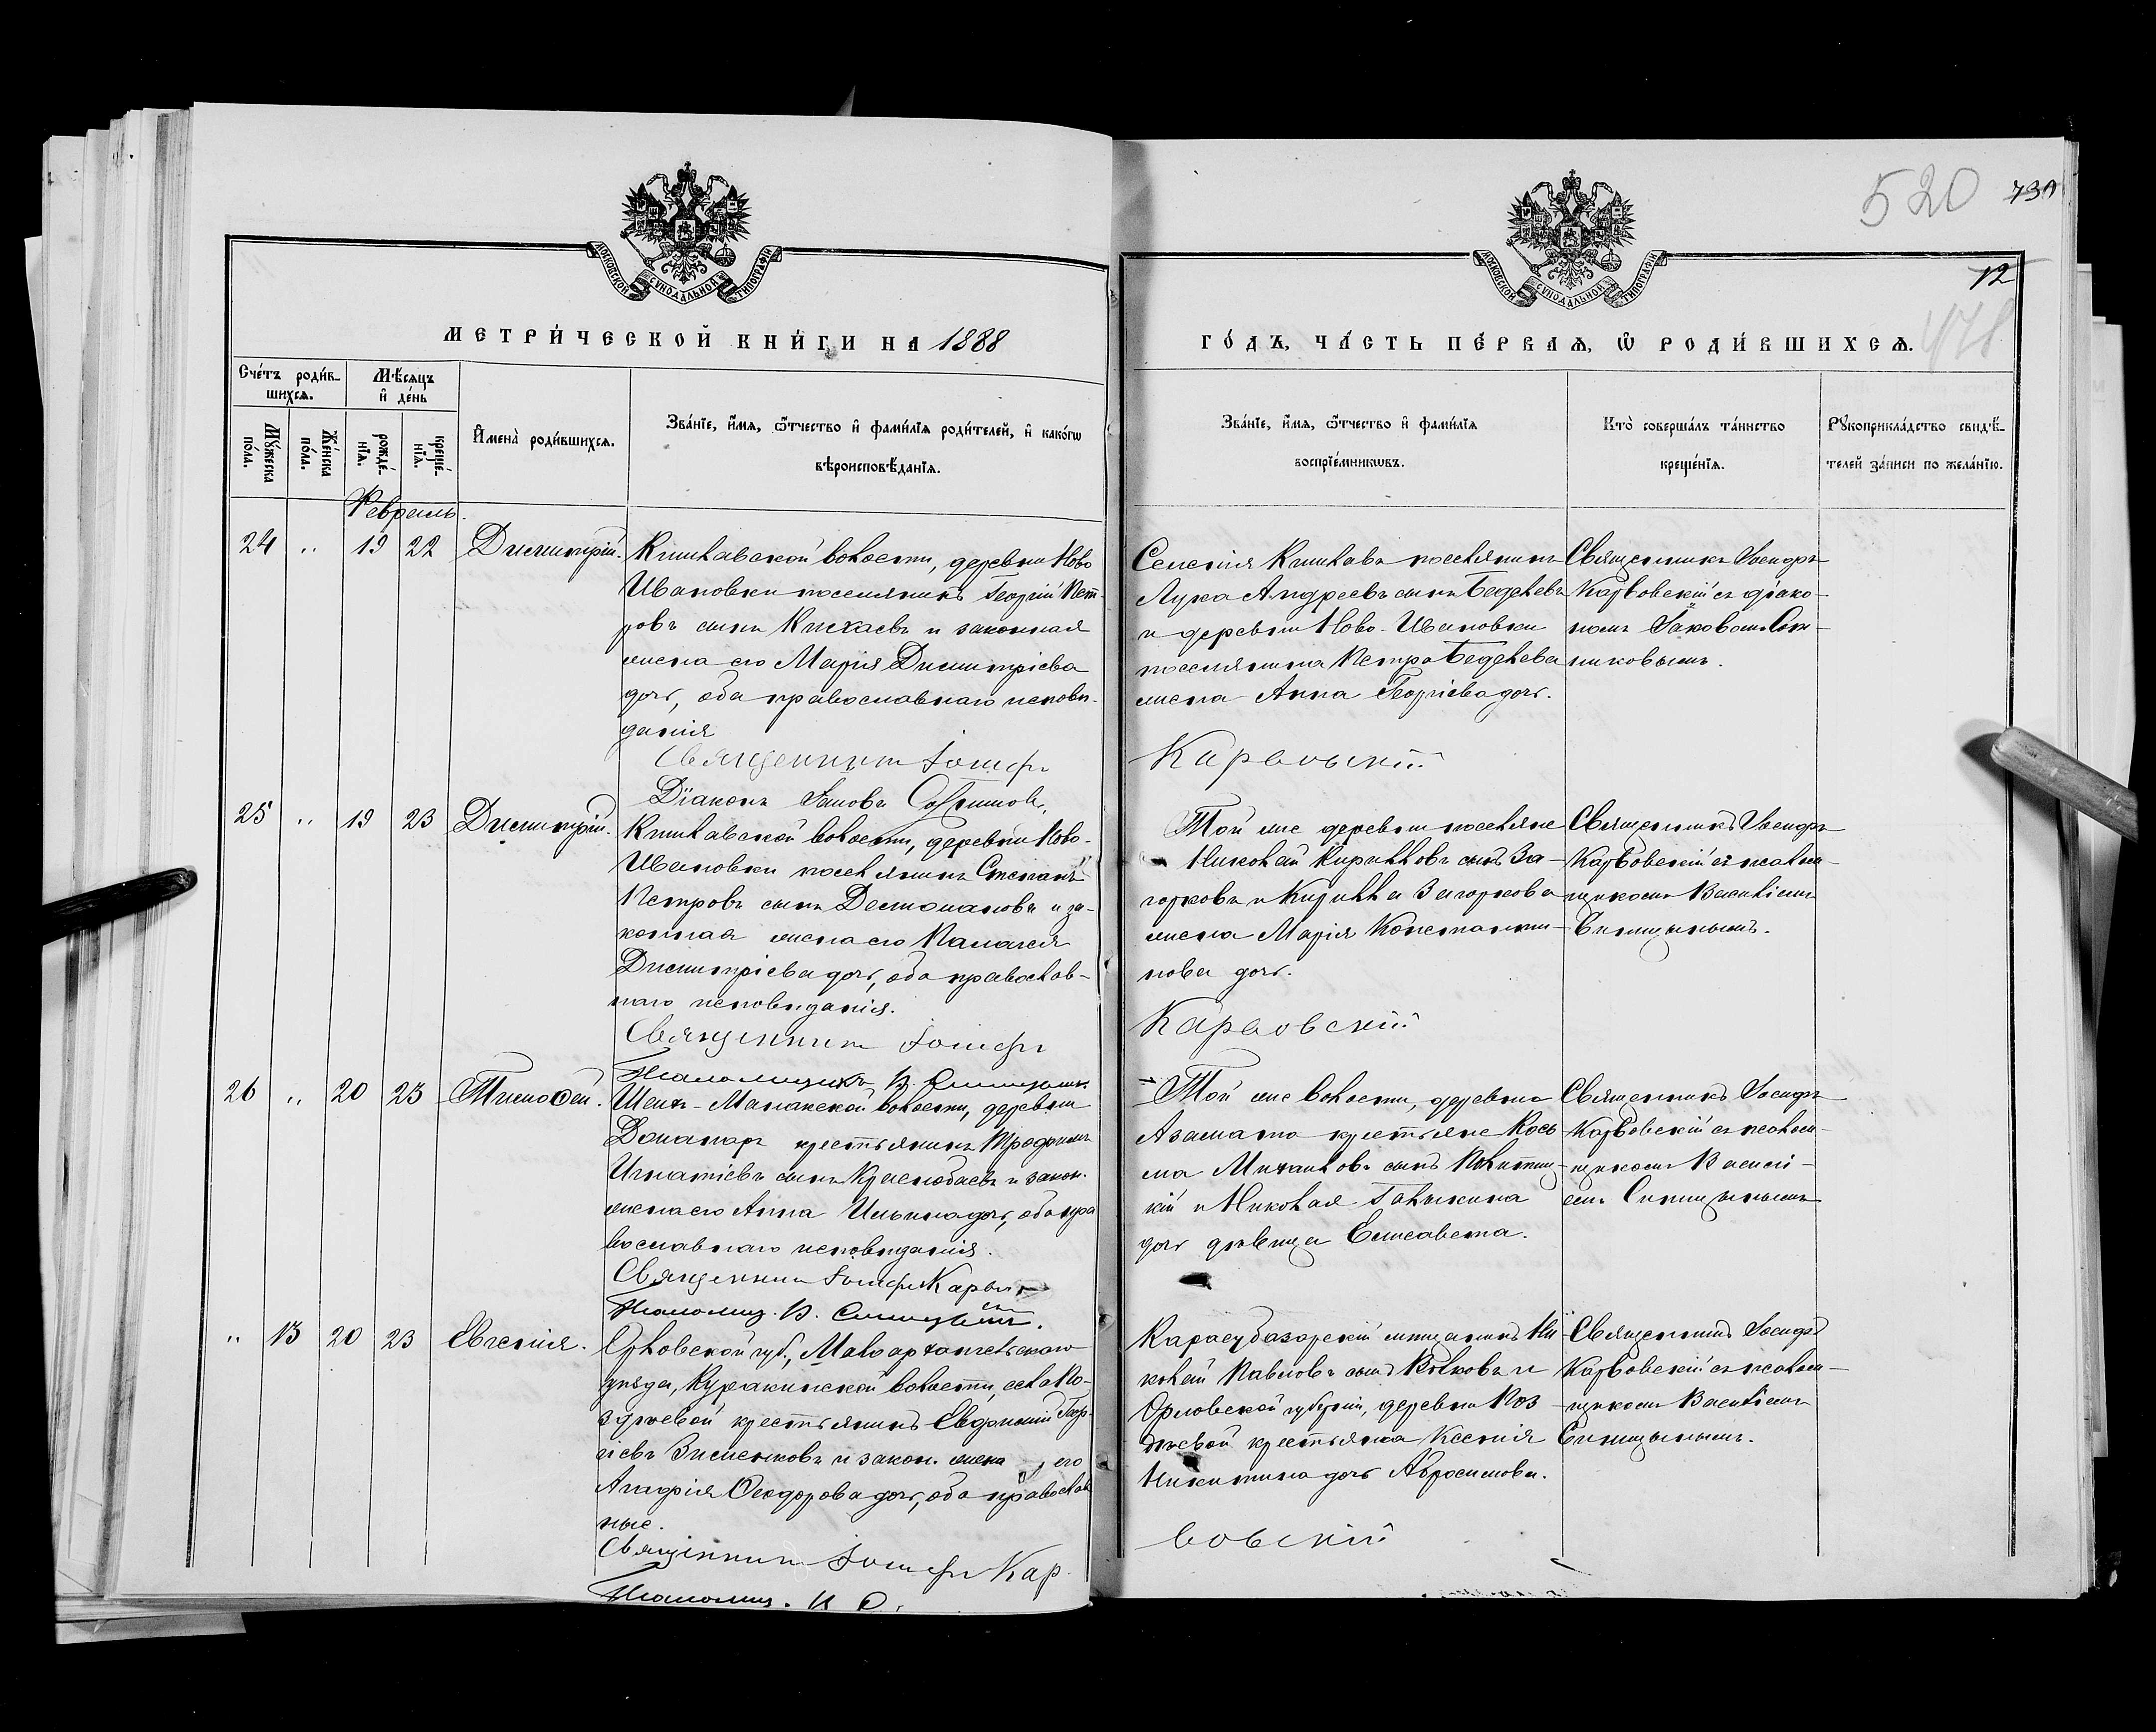 520
739
12
478
МОСКОВСКОЙ СУНОДАЛЬНОЙ ТИПОГРАФІИ
МОСКОВСКОЙ СУНОДАЛЬНОЙ ТИПОГРАФІИ
МЕТРИ́ЧЕСКОЙ КНИ́ГИ НА 1888
ГО́ДЪ, ЧА́СТЬ ПЕ́РВАѦ, Ѽ РОДИ́ВШИХСѦ.
Сче́тъ роди́в-
шихсѧ.
Мѣ́сѧцъ
и҆ де́нь
Мꙋ́жеска по́ла.
Же́нска по́ла.
рожде́-
нїѧ.
креще́-
нїѧ.
И҆мена̀ роди́вшихсѧ.
Зва́нїе, и҆́мѧ, ѻ҆́тчество и҆ фами́лїѧ роди́телей, и҆ како́гѡ
вѣроисповѣ́данїѧ.
Зва́нїе, и҆́мѧ, ѻ҆́тчество и҆ фами́лїѧ
воспрїе́мникѡвъ.
Кто̀ соверша́лъ та́инство
креще́нїѧ.
Рꙋкоприкла́дство свидѣ́-
телей за́писи по жела́нїю.
Февраль.
24 " 19 22 Димитрій.
Кишлавской волости, деревни Ново
Ивановки поселянинъ Георгій Пет-
ровъ сынъ и законная
жена его Марія Димитріева
дочь, оба православнаго исповѣ-
данія
Священникъ Іосифъ
Діаконъ Іаковъ
Селенія Кишлава поселянинъ
Лука Андреевъ сынъ Беделевъ
и деревни Ново-Ивановки
поселянина Петра Беделева
жена Анна Георгіева дочь.
Карвовскій
Священникъ Іосифъ
Карвовскій съ діако-
номъ Іаковомъ
25 " 19 23 Димитрій.
Кишлавской волости, деревни Ново-
Ивановки поселянинъ Степанъ
Петровъ сынъ и за-
конная жена его Палагея
Димитріева дочь, оба православ-
наго исповѣданія.
Священникъ Іосифъ
Псаломщикъ В. Синицынъ.
Той же деревни поселяне
Николай Кирилловъ сынъ За-
горковъ и Кирилла Загоркова
жена Марія Константи-
нова дочь.
Карвовскій
Священникъ Іосифъ
Карвовскій съ псалом-
щикомъ Василіемъ
Синицынымъ.
26 " 20 23 Тимоѳей.
Шейхъ-Манакской волости, деревни
крестьянинъ Трофимъ
Игнатіевъ сынъ Краснобаевъ и закон.
жена его Анна Ильина дочь, оба пра
вославнаго исповѣданія.
Священникъ Іосифъ Карвов
Псаломщ. В. Синицынъ.
Той же волости, деревни
Азамата крестьяне Кось
ма Михаиловъ сынъ
кій и Николая Галыкина
дочь дѣвица Елисавета.
Священникъ Іосифъ
Карвовскій съ псалом-
щикомъ Василі-
емъ Синицынымъ
" 13 20 23 Евгенія.
Орловской губ., Малоархангельскаго
уѣзда, Куракинской волости, села По-
здѣевой крестьянинъ Евфимій Геор-
гіевъ Зименковъ и закон. жена его
Ѳеодорова дочь, оба православ
ные.
Священникъ Іосифъ Кар
Псаломщ.
Карасубазарскій мѣщанинъ Ни
колай Павловъ сынъ Волковъ и
Орловской губерніи, деревни Поз
дѣевой крестьянка Ксенія
Никитина дочь Абросимова.
вовскій
Священникъ Іосифъ
Карвовскій съ псалом-
щикомъ Василіемъ
Синицынымъ.